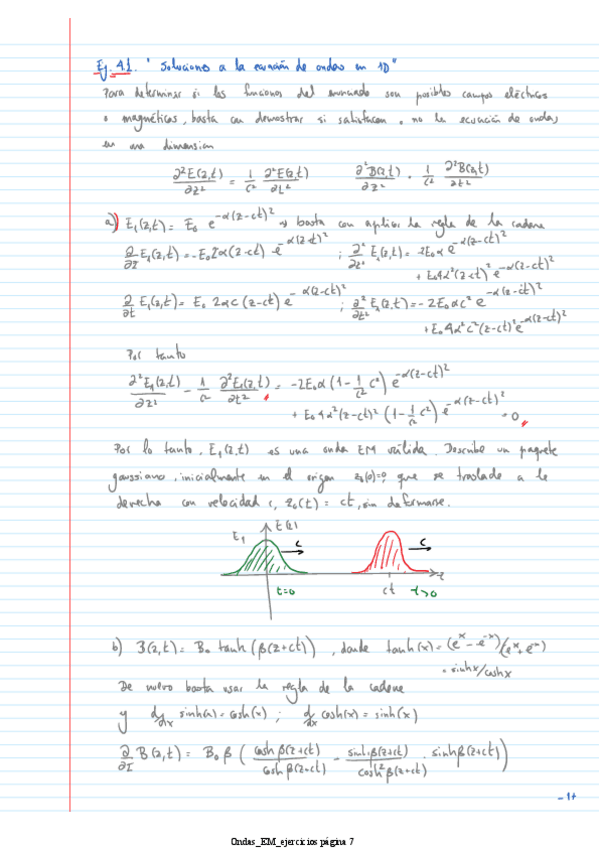 Ej. 4.1. "Soluciones a la ecuación de ondas en 1D"
Para determinar si las funciones del enunciado son posibles campos eléctricos
o magnéticos, basta con demostrar si satisfacen o no la ecuación de ondas
en una dimension
∂²E(z,t)/∂z² = 1/c² ∂²E(z,t)/∂t²   ∂²B(z,t)/∂z² = 1/c² ∂²B(z,t)/∂t²
a) E₁(z,t) = E₀ e^{-α(z-ct)²} → basta con aplicar la regla de la cadena
∂/∂z E₁(z,t) = -E₀2α(z-ct) e^{-α(z-ct)²} ; ∂²/∂z² E₁(z,t) = -2E₀α e^{-α(z-ct)²}
+ E₀4α²(z-ct)² e^{-α(z-ct)²}
∂/∂t E₁(z,t) = E₀ 2αc(z-ct) e^{-α(z-ct)²} ; ∂²/∂t² E₁(z,t) = -2E₀αc² e^{-α(z-ct)²}
+ E₀4α²c²(z-ct)² e^{-α(z-ct)²}
Por tanto
∂²E₁(z,t)/∂z² - 1/c² ∂²E₁(z,t)/∂t² = -2E₀α(1 - 1/c² c²) e^{-α(z-ct)²}
+ E₀4α²(z-ct)² (1 - 1/c² c²) e^{-α(z-ct)²} = 0
Por lo tanto, E₁(z,t) es una onda EM válida. Describe un paquete
gaussiano, inicialmente en el origen z₀(0)=0, que se traslada a la
derecha con velocidad c, z₀(t) = ct, sin deformarse.
E₁
c
c
t=0
ct
t>0
z
b) B(z,t) = B₀ tanh(β(z+ct)), donde tanh(x) = (eˣ - e⁻ˣ)/(eˣ + e⁻ˣ)
= sinhx/coshx
De nuevo basta usar la regla de la cadena
y d/dx sinh(x) = cosh(x) ; d/dx cosh(x) = sinh(x)
∂/∂z B(z,t) = B₀β ( coshβ(z+ct)/coshβ(z+ct) - sinhβ(z+ct)/cosh²β(z+ct) · sinhβ(z+ct) )
Ondas_EM_ejercicios página 7